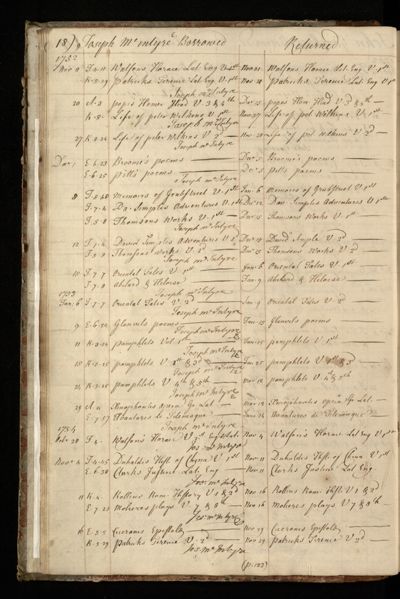 (18) Joseph McIntyre Borrowed Returned
1752
Nov 9 F.4.11 Watsons Horace Lat Eng Nov 21 Watsons Horace Lat Eng V 1st
K.2.29 Patricks Terence Lat Eng V 1st Nov 20 Patricks Terence Lat Eng V 1st
Joseph McIntyre
20 A.2 popes Homer Iliad V 3 & 4th Dec 15 popes Hom Iliad V 3d & 4th
K.8 Life of peter Wilkins V 1st Nov 27 Life of pet Wilkins V 1st
Joseph McIntyre
27 K.8.22 Life of peter Wilkins V 2d Life of pet Wilkins V 2d
Joseph McIntyre
Dec 1 E.6.23 Broome's poems Dec 5 Broome's poems
E.6.25 pitt's poems Dec 5 pitts poems
Joseph McIntyre
8 Memoirs of Gratefull V 1st Jan 6 Memoirs of Gratefull V 1st
F.7.4 Dd Simples Adventures V 1st Dec 12 Dav Simples Adventures V 1st
F.5.8 Thomsons Works V 1st Dec 15 Thomsons Works V 1st
Joseph McIntyre
12 F.7.4 David Simples Adventures V 2 David Simple V 2d
Thomsons Works V 2d Thomsons Works V 2d
Joseph McIntyre
15 F.7.7 Oriental Tales V 1st Jan 6 Oriental Tales V 1st
F.7.8 Abelard & Heloise Jan 9 Abelard & Heloise
Joseph McIntyre
1753
Jan 6 F.7.7 Oriental Tales V 2d Jan 9 Oriental Tales V 2d
Joseph McIntyre
9 E.6.20 Glanvils poems Jan 15 Glanvils poems
Joseph McIntyre
11 K.2.25 pamphlets Vol 1st pamphlets V 1st
Joseph McIntyre
15 K.2.25 pamphlets V 2d & 3d Jan 25 pamphlets V 2 & 3
Joseph McIntyre
25 K.2.25 pamphlets V 4th & 5th pamphlets V 4 & 5th
Joseph McIntyre
29 A.4 Xenophontis opera Gr Lat Xenophontis opera Gr Lat
E.7.17 Avantures de Telemaque Avantures de Telemaque
Joseph McIntyre
1754
F.4 Watsons Horace V 1st Eng & Lat Nov 4 Watson's Horace Lat Eng V 1st
Jos McIntyre
Nov 4 Duhaldes Hist of China V 1st Nov 11 Duhaldes Hist of China V 1st
E.6.30 Clarks Justin Lat Eng Nov 11 Clarks Justin Lat Eng
Jos McIntyre
11 K.4 Rollins Rom History V 1 & 2d Nov 16 Rollins Rom Hist V 1 & 2d
E.7.23 Molieres plays V 7 & 8th Nov 16 Molieres plays V 7 & 8th
Jos McIntyre
16 E.5.5 Ciceronis Epistolae Nov 29 Ciceronis Epistolae
K.2.29 Patricks Terence V 2d Nov 29 Patricks Terence V 2d
Jos McIntyre